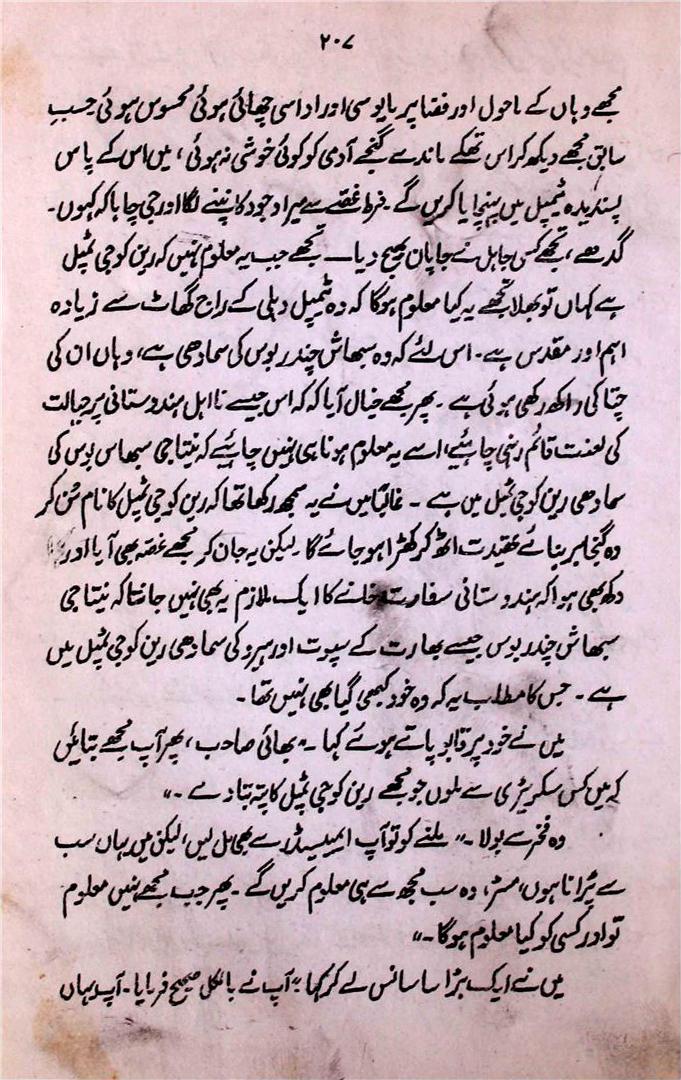 ۲۰۷
مجھے وہاں کے ماحول اور فضا پر مایوسی اور اداسی چھائی ہوئی محسوس ہوئی حسبِ
سابق مجھے دیکھ کر اس تھکے ماندے گنجے آدمی کو کوئی خوشی نہ ہوئی، میں اس کے پاس
پسندیدہ ٹیمپل میں پہنچایا کریں گے۔ فرطِ غصّے سے میرا وجود کانپنے لگا اور جی چاہا کہ کہوں۔
گدھے، تجھے کس جاہل نے جاپان بھیج دیا۔ تجھے جب یہ معلوم نہیں کہ رین کوجی ٹمپل
ہے کہاں تو بھلا تجھے یہ کیا معلوم ہوگا کہ وہ ٹمپل دہلی کے راج گھاٹ سے زیادہ
اہم اور مقدس ہے۔ اس لئے کہ وہ سبھاش چندر بوس کی سمادھی ہے، وہاں ان کی
چتا کی راکھ رکھی ہوئی ہے۔ پھر مجھے خیال آیا کہ کہ اس جیسے نااہل ہندوستانی پر جہالت
کی لعنت قائم رہنی چاہئیے، اسے یہ معلوم ہونا ہی نہیں چاہئیے کہ نیتا جی سبھاس بوس کی
سمادھی رین کوجی ٹمپل میں ہے۔ غالباً میں نے یہ سمجھ رکھا تھا کہ رین کوجی ٹمپل کا نام سُن کر
وہ گنجا بربنائے عقیدت اٹھ کر کھڑا ہو جائے گا۔ لیکن یہ جان کر مجھے غصّہ بھی آیا اور
دکھ بھی ہوا کہ ہندوستانی سفارت خانے کا ایک ملازم یہ بھی نہیں جانتا کہ نیتا جی
سبھاش چندر بوس جیسے بھارت کے سپوت اور ہیرو کی سمادھی رین کوجی ٹمپل میں
ہے۔ جس کا مطلب یہ کہ وہ خود کبھی گیا بھی نہیں تھا۔
میں نے خود پر قابو پاتے ہوئے کہا۔ "بھائی صاحب، پھر آپ مجھے بتائیں
کہ میں کس سکریٹری سے ملوں جو مجھے رین کوجی ٹمپل کا پتہ بتا دے۔"
وہ فخر سے بولا۔ "ملنے کو تو آپ ایمبیسیڈر سے بھی مل لیں، لیکن میں یہاں سب
سے پُرانا ہوں، مسٹر، وہ سب مجھ سے ہی معلوم کریں گے۔ پھر جب مجھے نہیں معلوم
تو اور کسی کو کیا معلوم ہوگا۔"
میں نے ایک بڑا سا سانس لے کر کہا "آپ نے بالکل صحیح فرمایا۔ آپ یہاں